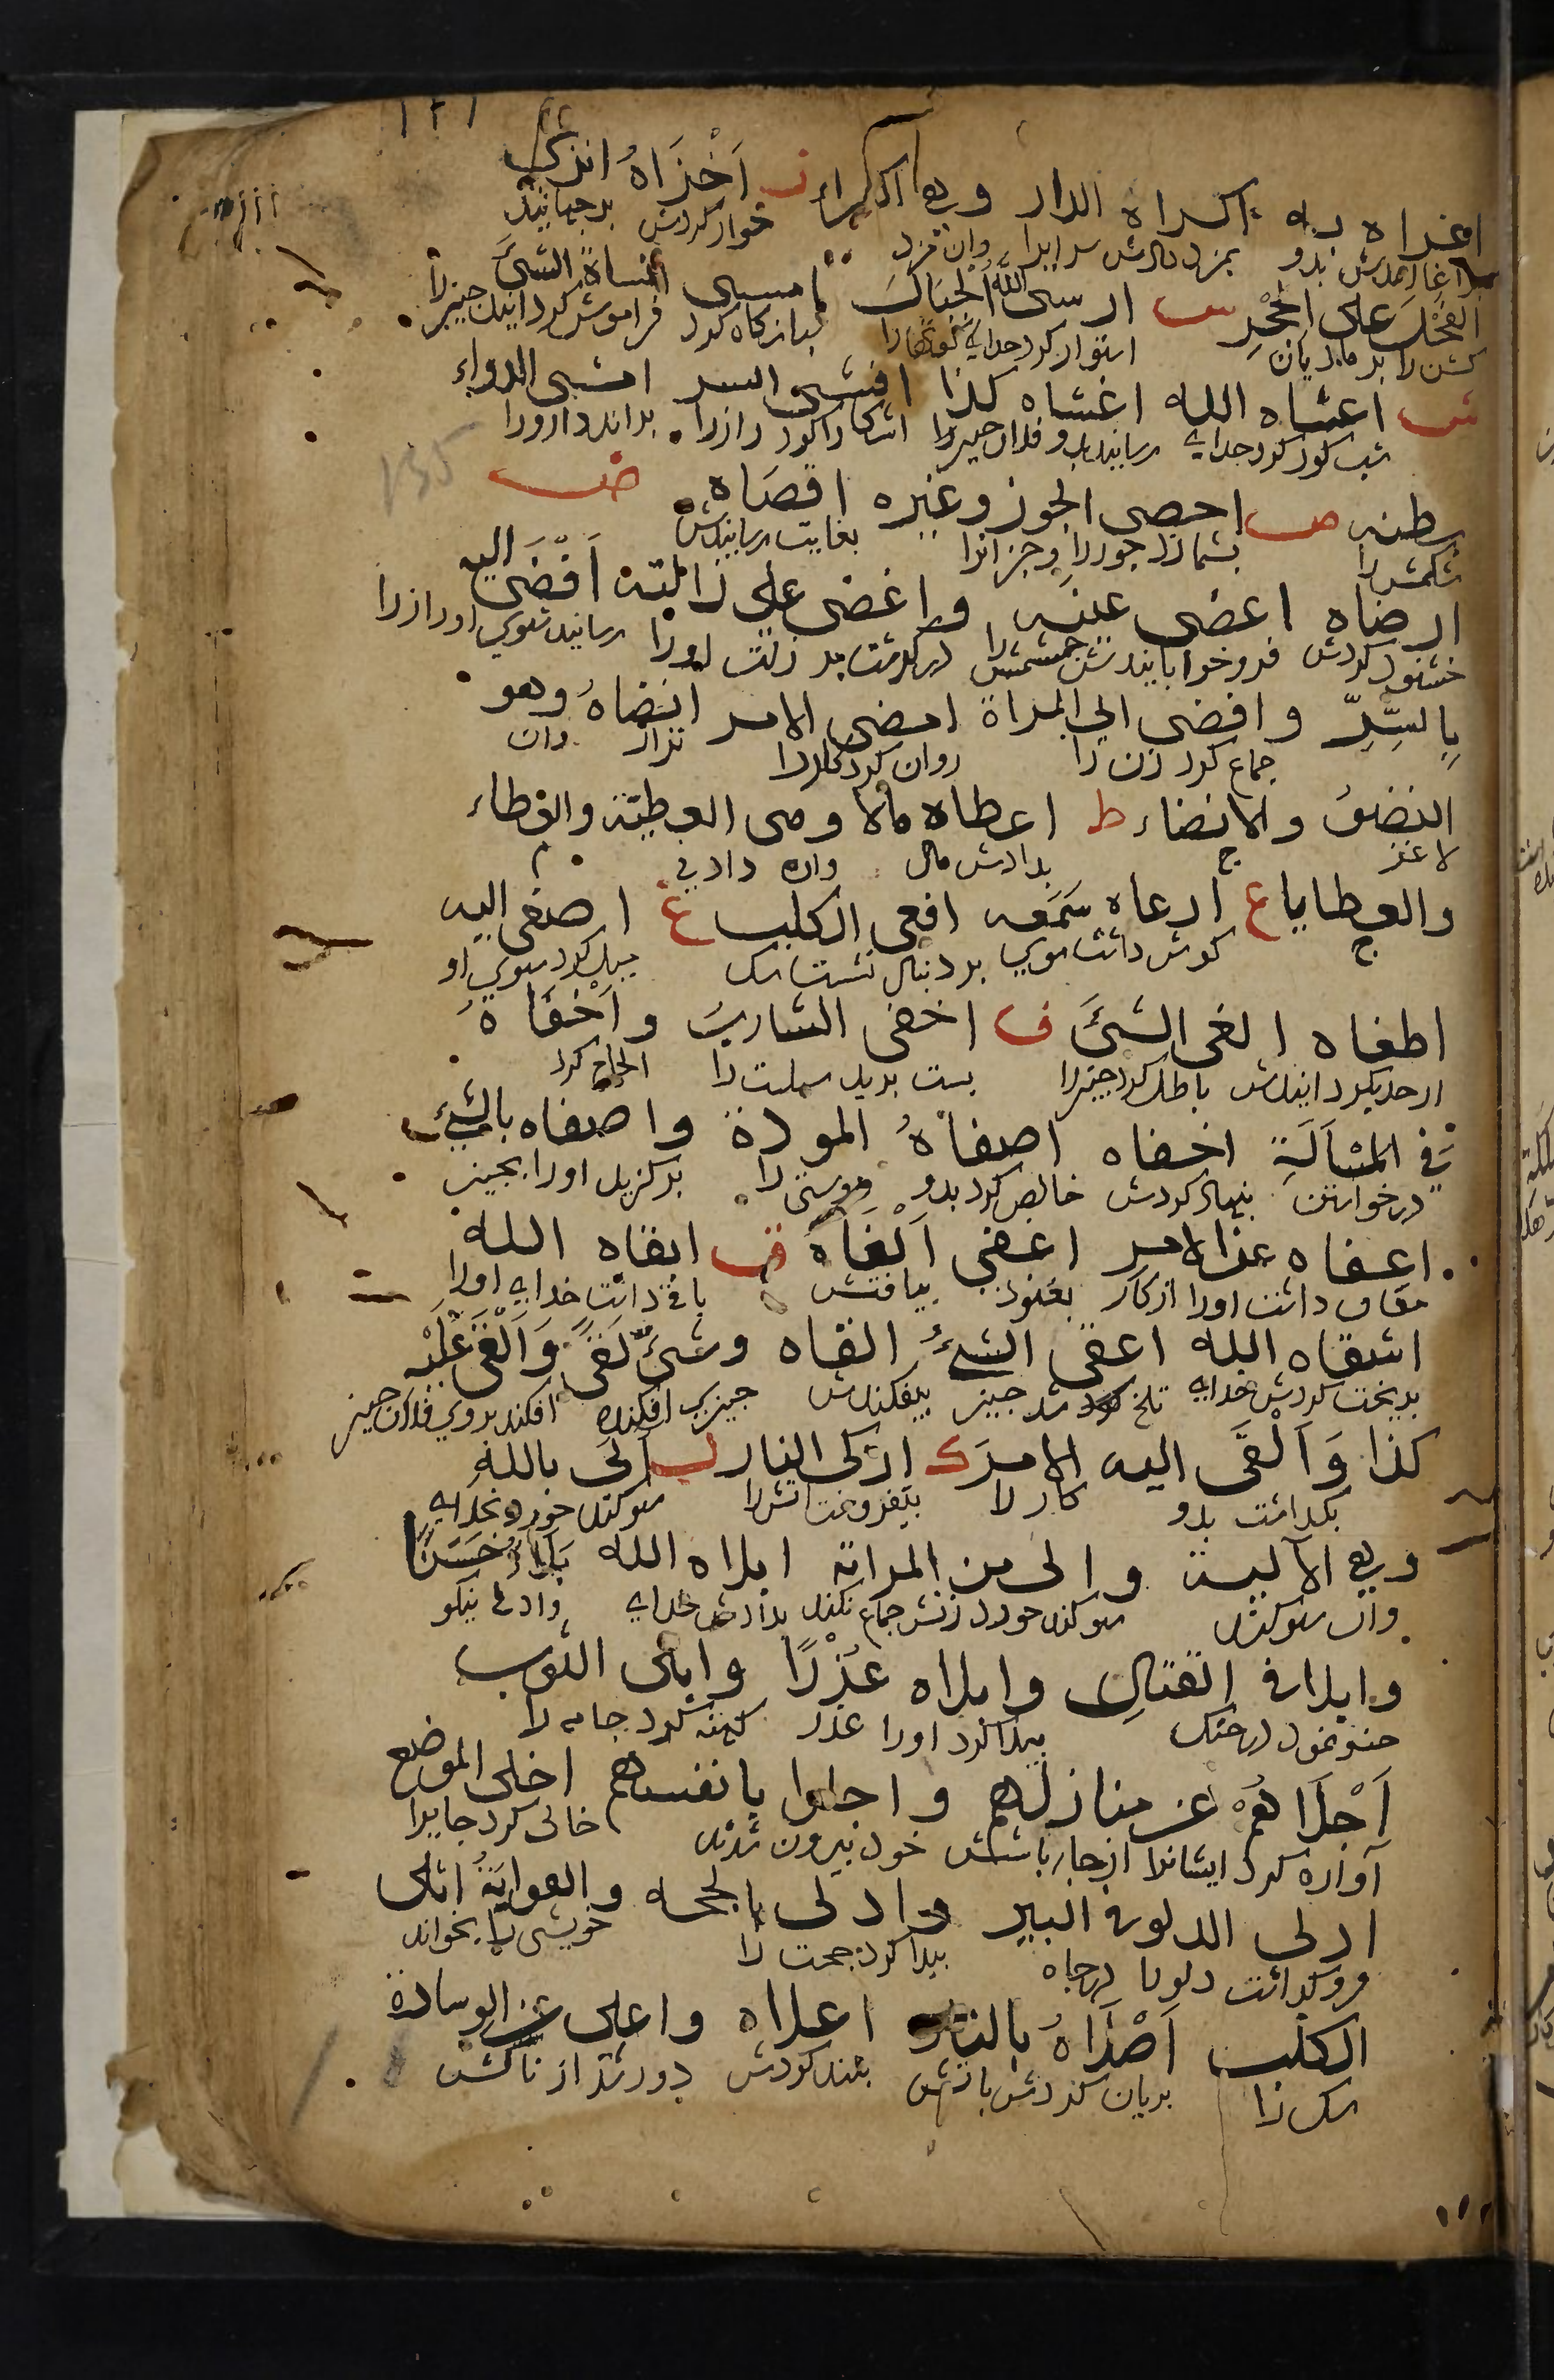 اغراه به اكراه الدار وهو الكراء ز اَخْزَاهُ انزى
برآغاليدش بدو بمزد دادش سرايرا وان مزد خوار كردش برجهانيد
الفحلَ على الحِجْرِ س ارسى اللهُ الجبالَ امسى انساهُ الشئَ
كشن را بر ماديان استوار كرد خداى كوهها را شبانگاه كرد فراموش كردانيدش چيزرا
ش اعشاه الله اغشاه كذا افشى السر امشى الدواء
شب كور كرد خداى رسانيد بدو فلان چيزرا اشكارا كرد رازرا براند دارو را
بطنه ص احصى الجوز وغيره اقصَاه ض
شكمش را بشمارد جوزرا وجز انرا بغايت رسانيدش
ارضاه اغضى عينه واغضى على زلته اَفْضَى اليه
خشنود كردش فرو خوابانيد چشمش را دركذشت بر زلت اورا رسانيد بسوى او رازرا
بِالسِّرِّ وافضى الى المراة امضى الامر انضاهُ وهو
جماع كرد زن را روان كرد كاررا نزار وان
النضوُ والانضاء ط اعطاه مالا وهى العطيّة والعطاء
لاغر ج بدادش مال وان داد
والعطايا ع ارعاه سَمعَه اقعى الكلب غ اصغى اليه
ج كوش داشت سوى بر دنبال نشست سك ميل كرد سوى او
اطغاه الغى الشئَ ف احفى الشاربَ واَحْفَاهُ
از حد بكردانيدش باطل كرد چيزرا پست بريد سبلت را الحاح كرد
فى المسْاَلَةِ اخفاه اصفاهُ المودة واصفاه بالشئ
درخواستن پنهان كردش خالص كرد بدو دوستى را بركزيد اورا بچيز
اعفاه عن الامر اغفى اَلْفَاهُ ق ابقاه الله
معاف داشت اورا از كار بغنود بيافتش باقى داشت خداى اورا
اشقاه الله اعقى الشئُ القاه وشئٌ لَقىً وَاَلْقَى عَلَيْه
بدبخت كردش خداى تلخ شد چيز بيفكندش چيزى افكنده افكند بروى فلان چيز
كذا وَاَلْقَى اليه الامرَ ك اذكى النار ل آلَى باللهِ
بكذاشت بدو كار را بيفروخت اتش را سوكند خورد بخداى
وهى الاَليّة وآلى من المراة ابلاه الله بَلَاءً حَسَنًا
وان سوكند سوكند خورد زنش جماع نكند بدادش خداى دادنى نيكو
وابلى فى القتالِ وابلاه عُذْرًا وابلى الثوب
جنك نمود در جنك پيدا كرد اورا عذر كهنه كرد جامه را
اَجْلَاهُمْ عن منازلهم واجلوا بانفسهم اخلى الموضع
آواره كرد ايشانرا از جاى باشش خود بيرون شدند خالى كرد جايرا
ادلى الدلو فى البير وادلى بالحجه والقرابةُ اشلى
فروكذاشت دلورا در چاه پيدا كرد حجت را خويشى را بخواند
الكلب اَصْلَاهُ بالنار اعلاه واعلى عن الوسادة
سك را بريان كردش باتش بلند كردش دور شد از بالش